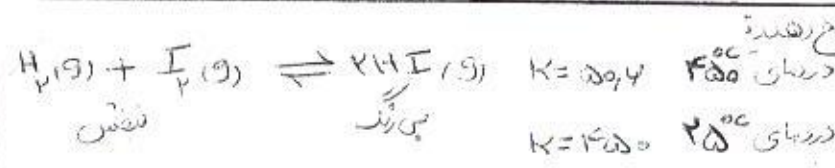 H₂(g) + I₂(g) ⇌ ۲HI(g) K = ۵۰,۲ دردمای ۴۵۰°C
بنفش بی رنگ
K = ۴۵۰ دردمای ۲۵°C